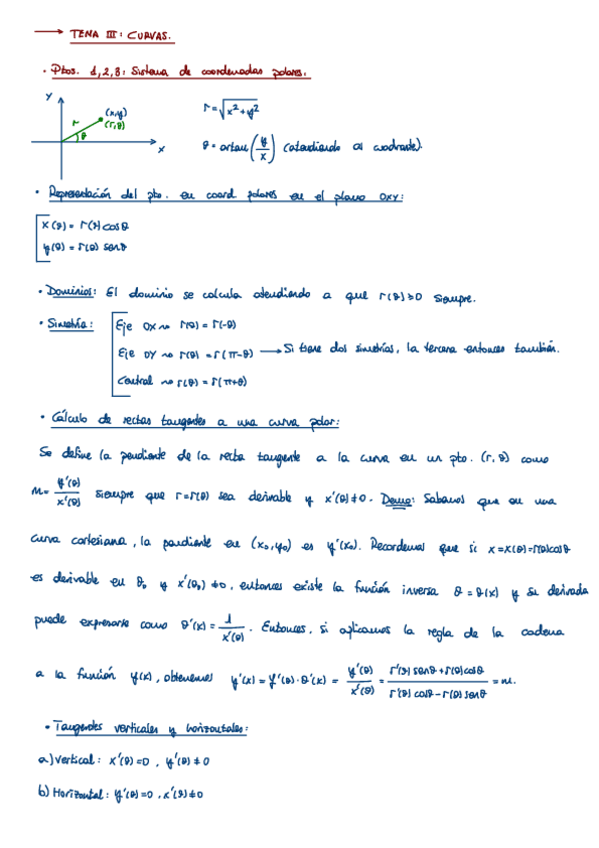 → TEMA III: CURVAS.
• Ptos. 1,2,3: Sistema de coordenadas polares.
y
(x,y)
r = √x²+y²
r
(r,θ)
θ
x
θ = artan(y/x) (atendiendo al cuadrante).
• Representación del pto. en coord polares en el plano OXY:
x(θ) = r(θ) cosθ
y(θ) = r(θ) senθ
• Dominios: El dominio se calcula atendiendo a que r(θ) ≥ 0 siempre.
• Simetría: Eje OX ~ r(θ) = r(-θ)
Eje OY ~ r(θ) = r(π-θ) → Si tiene dos simetrías, la tercera entonces también.
Central ~ r(θ) = r(π+θ)
• Cálculo de rectas tangentes a una curva polar:
Se define la pendiente de la recta tangente a la curva en un pto. (r,θ) como
m = y'(θ)/x'(θ) siempre que r=r(θ) sea derivable y x'(θ) ≠ 0. Demo: Sabemos que en una
curva cartesiana, la pendiente en (x₀,y₀) es y'(x₀). Recordemos que si x=x(θ)=r(θ)cosθ
es derivable en θ₀ y x'(θ₀) ≠ 0, entonces existe la función inversa θ = θ(x) y su derivada
puede expresarse como θ'(x) = 1/x'(θ). Entonces, si aplicamos la regla de la cadena
a la función y(x), obtenemos y'(x) = y'(θ)·θ'(x) = y'(θ)/x'(θ) = r'(θ) senθ + r(θ) cosθ / r'(θ) cosθ - r(θ) senθ = m.
• Tangentes verticales y horizontales:
a) Vertical: x'(θ) = 0, y'(θ) ≠ 0
b) Horizontal: y'(θ) = 0, x'(θ) ≠ 0